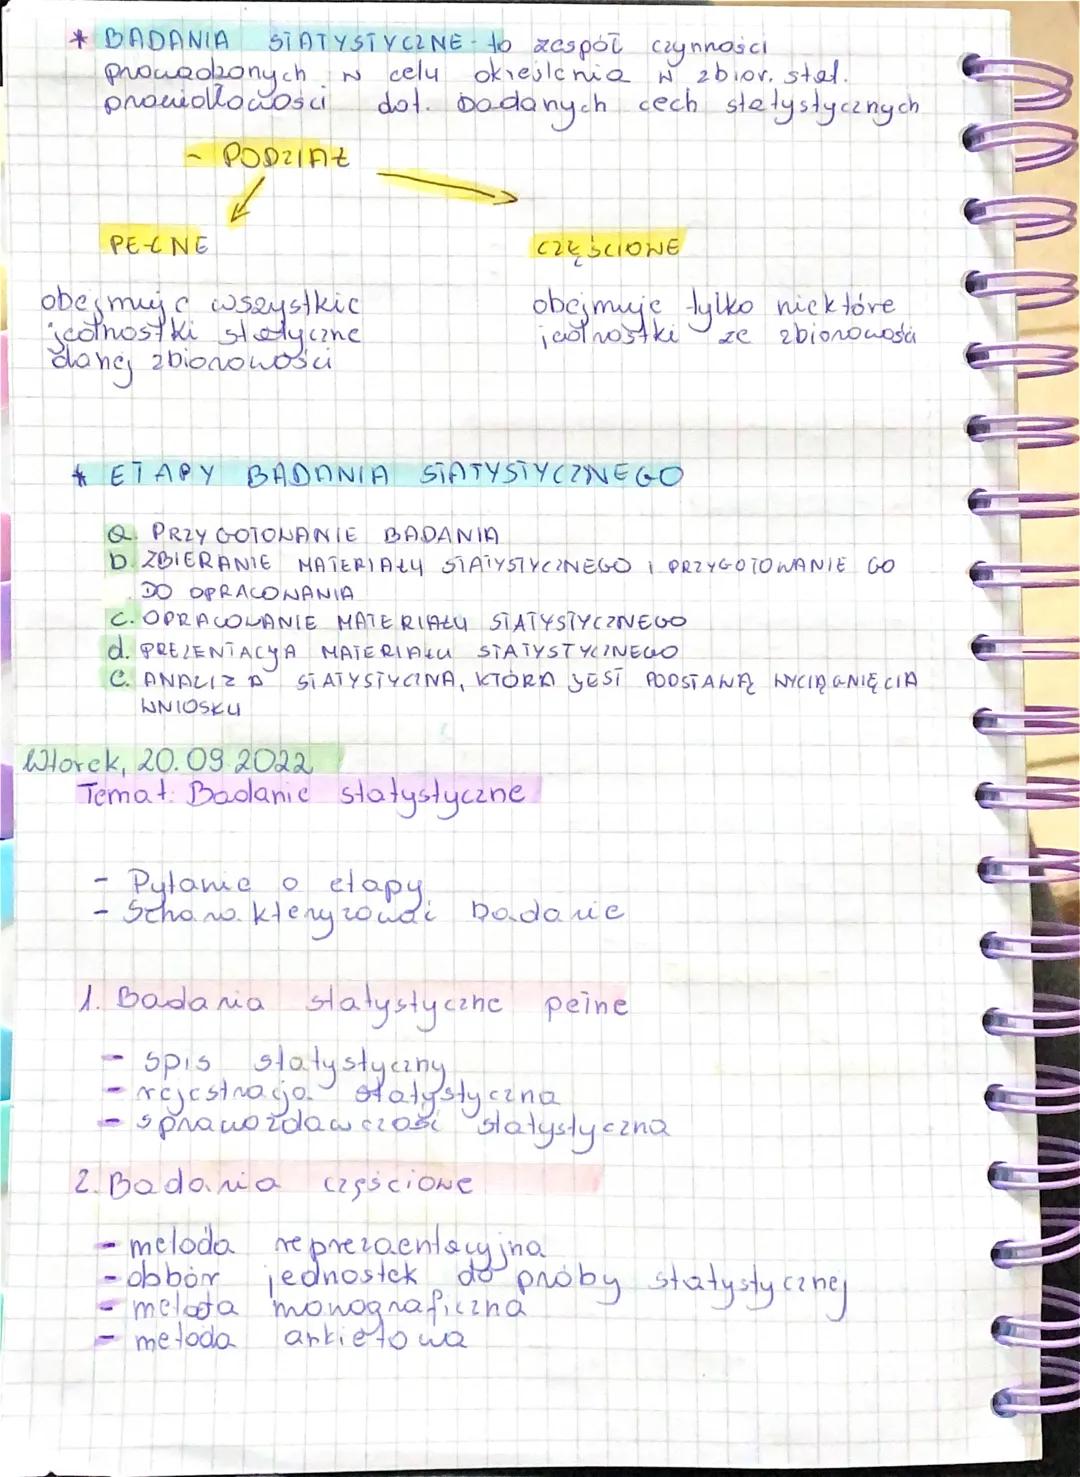 * BADANIA STATYSTYCZNE - to zespół czynności
prowadzonych w celu określenia w zbior. stat.
prawidłowości dot. badanych cech statystycznych
- PODZIAŁ
PEŁNE
CZĘŚCIOWE
obejmuje wszystkie
jednostki statyczne
danej zbiorowości
obejmuje tylko niektóre
jednostki ze zbiorowości
* ETAPY BADANIA STATYSTYCZNEGO
a. PRZYGOTOWANIE BADANIA
b. ZBIERANIE MATERIAŁU STATYSTYCZNEGO I PRZYGOTOWANIE GO
DO OPRACOWANIA
c. OPRACOWANIE MATERIAŁU STATYSTYCZNEGO
d. PREZENTACJA MATERIAŁU STATYSTYCZNEGO
e. ANALIZA STATYSTYCZNA, KTÓRA JEST PODSTAWĄ WYCIĄGNIĘCIA
WNIOSKU
Wtorek, 20.09.2022
Temat: Badanie statystyczne
- Pytanie o etapy
- Scharakteryzować badanie
1. Badania statystyczne pełne
- spis statystyczny
- rejestracja statystyczna
- sprawozdawczość statystyczna
2. Badania częściowe
- metoda reprezaentacyjna
- dobbór jednostek do próby statystycznej
- metoda monograficzna
- metoda ankietowa